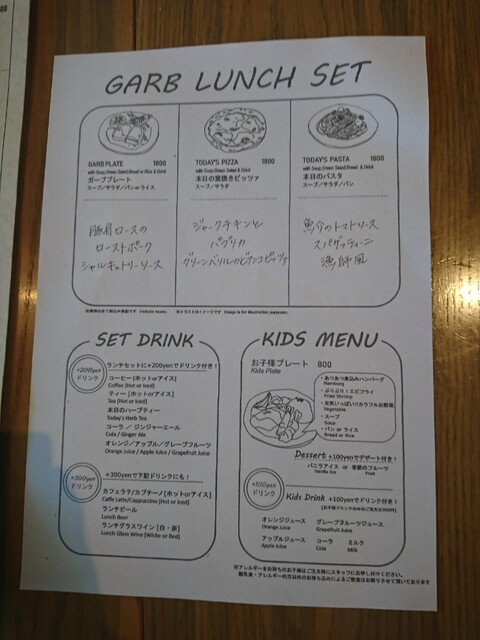 GARB LUNCH SET
GARB PLATE 1800
with Soup,Green Salad,Bread or Rice & Drink
ガーブプレート
スープ／サラダ／パン or ライス
豚肩ロースの
ローストポーク
シャルキュトリーソース
TODAY'S PIZZA 1800
with Soup,Green Salad & Drink
本日の窯焼きピッツァ
スープ／サラダ
ジャークチキンと
パプリカ
グリーンバジルのビアンコピッツァ
TODAY'S PASTA 1800
with Soup,Green Salad,Bread & Drink
本日のパスタ
スープ／サラダ／パン
魚介のトマトソース
スパゲッティーニ
漁師風
※イラストはイメージです Image is for illustration purposes.
SET DRINK
+200yen
ドリンク
ランチセットに+200yenでドリンク付き！
コーヒー [ホットorアイス]
Coffee [Hot or Iced]
ティー [ホットorアイス]
Tea [Hot or Iced]
本日のハーブティー
Today's Herb Tea
コーラ ／ ジンジャーエール
Cola / Ginger Ale
オレンジ／アップル／グレープフルーツ
Orange Juice / Apple Juice / Grapefruit Juice
+300yen
ドリンク
+300yenで下記ドリンクにも！
カフェラテ/カプチーノ [ホットorアイス]
Caffe Latte/Cappuccino [Hot or Iced]
ランチビール
Lunch Beer
ランチグラスワイン [白・赤]
Lunch Glass Wine [White or Red]
KIDS MENU
お子様プレート 800
Kids Plate
・あつあつ煮込みハンバーグ
Hamburg
・ぷりぷり！エビフライ
Fried Shrimp
・元気いっぱい!!カラフルお野菜
Vegetable
・スープ
Soup
・パン or ライス
Bread or Rice
Dessert +100yenでデザート付き！
バニラアイス or 季節のフルーツ
Vanilla Ice Fruit
+100yen
ドリンク
Kids Drink +100yenでドリンク付き！
オレンジジュース グレープフルーツジュース
Orange Juice Grapefruit Juice
アップルジュース コーラ ミルク
Apple Juice Cola Milk
※アレルギーをお持ちのお子様はご注文時にスタッフにお申し付けください。
離乳食・アレルギーの方以外のお持ち込みによるご飲食はお断りさせて頂いております